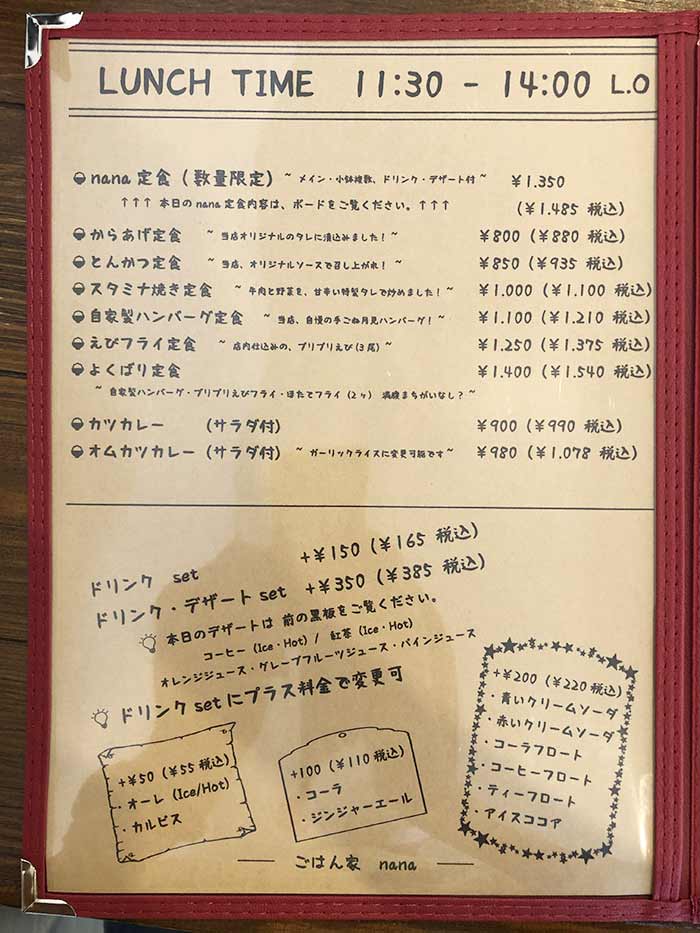 LUNCH TIME 11:30 - 14:00 L.O
nana定食(数量限定) ~ メイン・小鉢複数、ドリンク・デザート付 ~ ¥1.350
↑↑↑ 本日のnana定食内容は、ボードをご覧ください。↑↑↑ (¥1.485 税込)
からあげ定食 ~ 当店オリジナルのタレに漬込みました! ~ ¥800 (¥880 税込)
とんかつ定食 ~ 当店、オリジナルソースで召し上がれ! ~ ¥850 (¥935 税込)
スタミナ焼き定食 ~ 牛肉と野菜を、甘辛い特製タレで炒めました! ~ ¥1.000 (¥1.100 税込)
自家製ハンバーグ定食 ~ 当店、自慢の手ごね月見ハンバーグ! ~ ¥1.100 (¥1.210 税込)
えびフライ定食 ~ 店内仕込みの、プリプリえび(3尾) ~ ¥1.250 (¥1.375 税込)
よくばり定食 ¥1.400 (¥1.540 税込)
~ 自家製ハンバーグ・プリプリえびフライ・ほたてフライ(2ヶ) 満腹まちがいなし? ~
カツカレー (サラダ付) ¥900 (¥990 税込)
オムカツカレー (サラダ付) ~ ガーリックライスに変更可能です ~ ¥980 (¥1.078 税込)
ドリンク set +¥150 (¥165 税込)
ドリンク・デザート set +¥350 (¥385 税込)
本日のデザートは 前の黒板をご覧ください。
コーヒー (Ice・Hot) / 紅茶 (Ice・Hot)
オレンジジュース・グレープフルーツジュース・パインジュース
ドリンク setにプラス料金で変更可
+¥50 (¥55 税込)
・オーレ (Ice/Hot)
・カルピス
+100 (¥110 税込)
・コーラ
・ジンジャーエール
+¥200 (¥220 税込)
・青いクリームソーダ
・赤いクリームソーダ
・コーラフロート
・コーヒーフロート
・ティーフロート
・アイスココア
ごはん家 nana